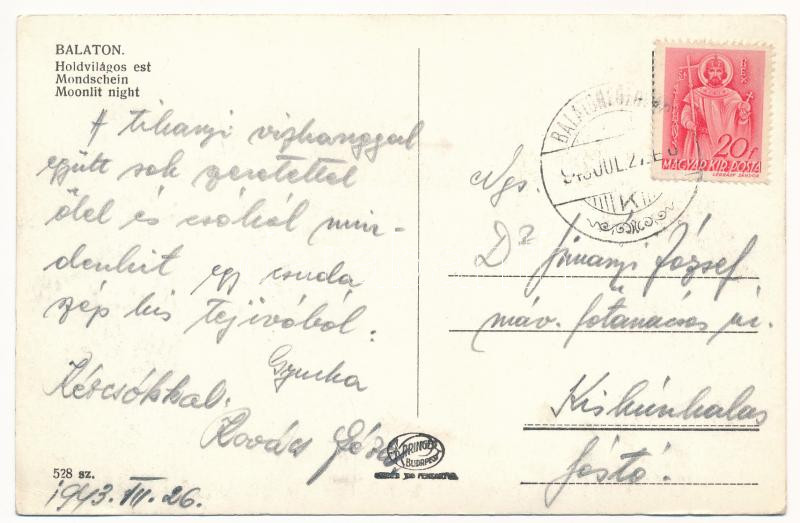 BALATON.
Holdvilágos est
Mondschein
Moonlit night
A tihanyi vizhanggal
együtt sok szeretettel
ölel és csókol min-
denkit egy csuda
szép kis tejivóból:
Gyurka
Kézcsókkal:
Kovács Géza
528 sz.
1943. VII. 26.
BARINGER
BUDAPEST
943 JUL. 27.
SZT ISTVÁN REX
20f
MAGYAR KIR. POSTA
LÉGRÁDY SÁNDOR
Ngs.
Dr Jimanyi József
máv. főtanácsos úr.
Kiskúnhalas